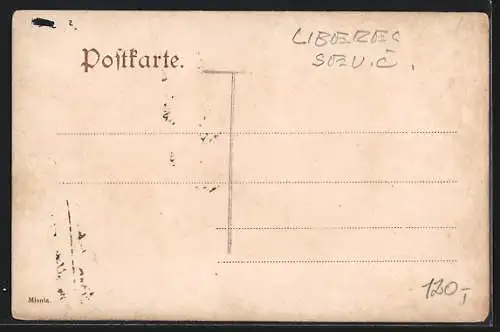 LIBEREC
SEV.Č.
Postkarte.
Misnia.
120,-